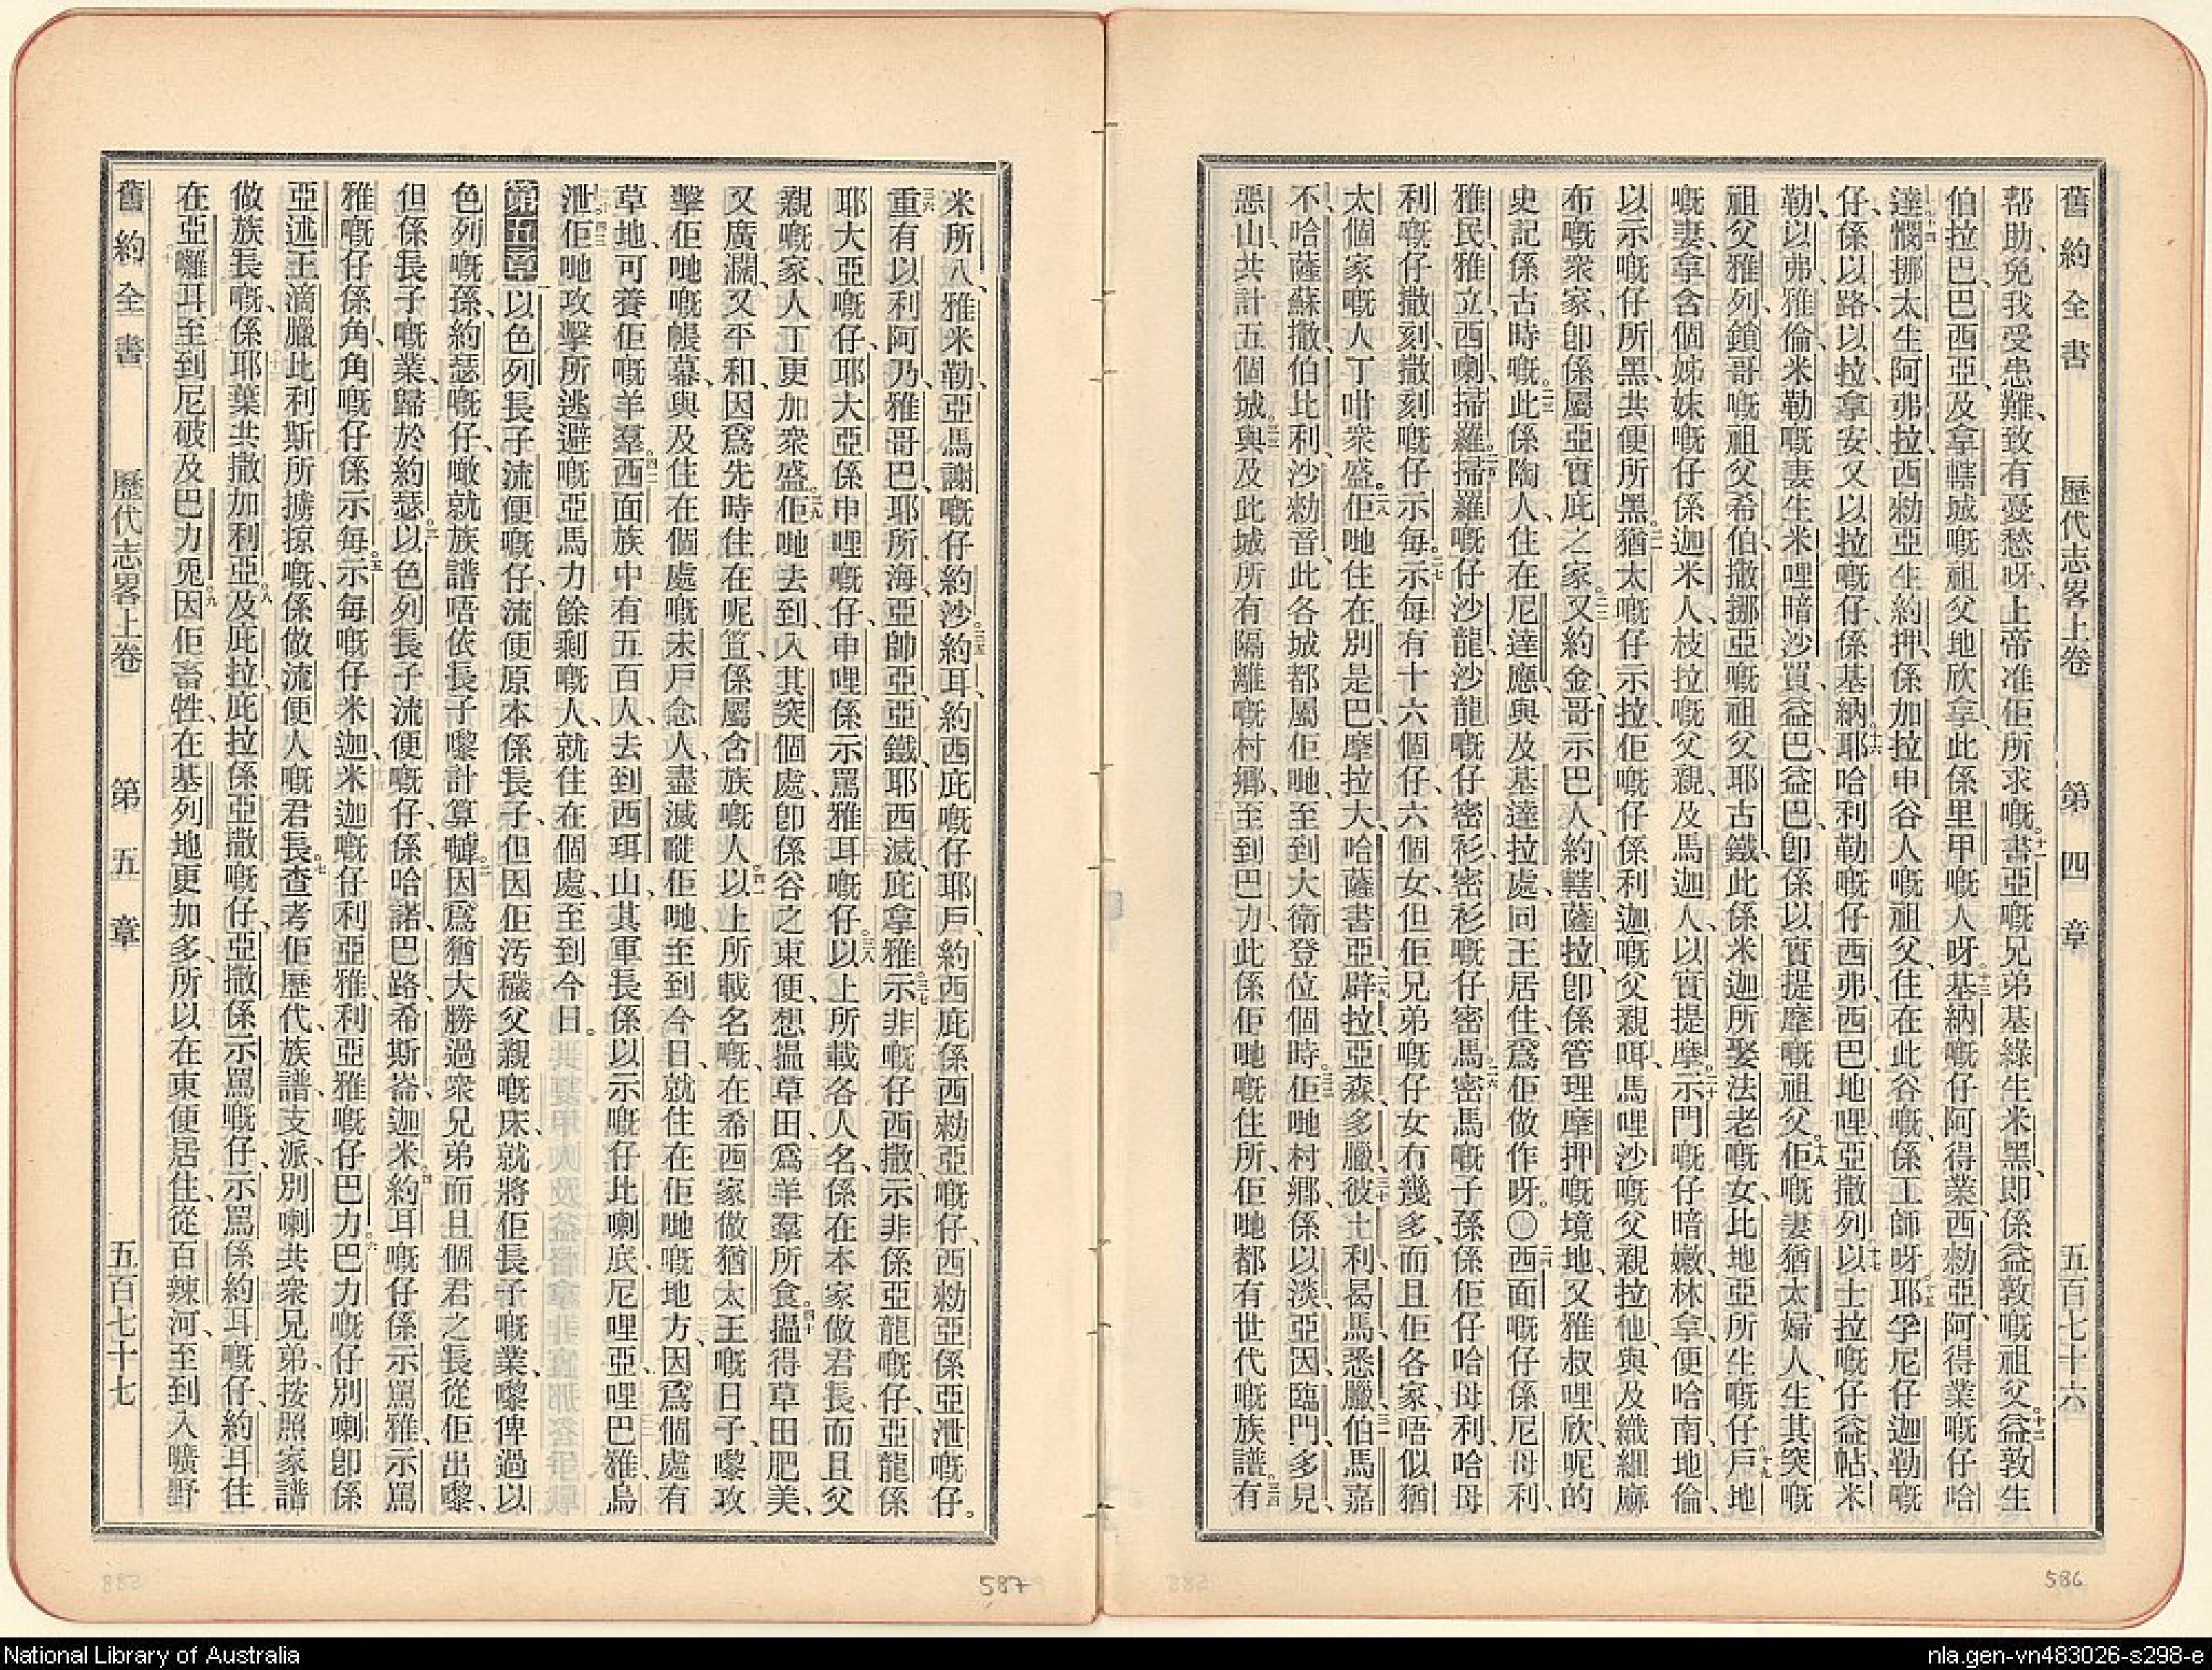 舊約全書　歷代志畧上卷　第四章　五百七十六
帮助、免我受患難、致有憂愁呀、上帝准佢所求嘅。十一書亞嘅兄弟基綠生米黑、即係益敦嘅祖父。十二益敦生
伯拉巴、巴西亞、及拿轄城嘅祖父地欣拿、此係里甲嘅人呀。十三基納嘅仔阿得業、西勑亞、阿得業嘅仔哈
達。十四憫挪太生阿弗拉、西勑亞生約押、係加拉申谷人嘅祖父、住在此谷嘅、係工師呀。十五耶孚尼仔迦勒嘅
仔、係以路、以拉、拿安、又以拉嘅仔、係基納。十六耶哈利勒嘅仔西弗、西巴、地哩、亞撒列。十七以士拉嘅仔益帖、米
勒、以弗、雅倫、米勒嘅妻生米哩暗、沙買、益巴、益巴卽係以實提摩嘅祖父。十八佢嘅妻猶太婦人生其突嘅
祖父雅列、鎖哥嘅祖父希伯、撒挪亞嘅祖父耶古鐵、此係米迦所娶法老嘅女、比地亞所生嘅仔。十九戶地
嘅妻、拿含個姊妹嘅仔、係迦米人枝拉嘅父親、及馬迦人以實提摩。二十示門嘅仔暗嫩、林拿、便哈南、地倫、
以示嘅仔所黑、共便所黑。二一猶太嘅仔示拉、佢嘅仔係利迦嘅父親咡、馬哩沙嘅父親拉他、與及織細廊
布嘅衆家、卽係屬亞實庇之家。二二又約金、哥示巴人、約轄、薩拉、卽係管理摩押嘅境地、又雅叔哩欣、呢的
史記係古時嘅。二三此係陶人、住在尼達應、與及基達拉處、同王居住、爲佢做作呀。〇二四西面嘅仔係尼母利、
雅民、雅立、西喇、掃羅。二五掃羅嘅仔沙龍、沙龍嘅仔密衫、密衫嘅仔密馬。二六密馬嘅子孫係佢仔哈母利、哈母
利嘅仔撒刻、撒刻嘅仔示每。二七示每有十六個仔、六個女、但佢兄弟嘅仔女冇幾多、而且佢各家唔似猶
太個家嘅人丁咁衆盛。二八佢哋住在別是巴、摩拉大、哈薩書亞、二九辟拉、亞森、多臘、三十彼土利、曷馬、悉臘、三一伯馬嘉
不、哈薩蘇撒、伯比利、沙勑音、此各城都屬佢哋、至到大衛登位個時。三二佢哋村鄉、係以淡、亞因、臨門、多見、
惡山、共計五個城。三三與及此城所有隔離嘅村鄉、至到巴力、此係佢哋嘅住所、佢哋都有世代嘅族譜。三四有
米所八、雅米勒、亞馬謝嘅仔約沙。三五約耳、約西庇嘅仔耶戶、約西庇係西勑亞嘅仔、西勑亞係亞泄嘅仔。
三六重有以利阿乃、雅哥巴、耶所海、亞帥亞、亞鐵、耶西滅、庇拿雅、三七示非嘅仔西撒、示非係亞龍嘅仔、亞龍係
耶大亞嘅仔、耶大亞係申哩嘅仔、申哩係示罵雅耳嘅仔。三八以上所載各人名、係在本家做君長、而且父
親嘅家人丁更加衆盛。三九佢哋去到入其突個處、卽係谷之東便、想揾草田、爲羊羣所食。四十揾得草田肥美、
又廣濶、又平和、因爲先時住在呢笪、係屬含族嘅人。四一以上所載名嘅、在希西家做猶太王嘅日子嚟攻
擊佢哋嘅帳幕、與及住在個處嘅未戶念人、盡滅嘥佢哋、至到今日、就住在佢哋嘅地方、因爲個處有
草地、可養佢嘅羊羣。四二西面族中有五百人、去到西珥山、其軍長係以示嘅仔比喇底、尼哩亞、哩巴雅、烏
泄、四三佢哋攻擊所逃避嘅亞馬力餘剩嘅人、就住在個處、至到今日。
第五章　以色列長子流便嘅仔、流便原本係長子、但因佢汚穢父親嘅床、就將佢長子嘅業、嚟俾過以
色列嘅孫、約瑟嘅仔、噉就族譜唔依長子嚟計算嘑。二因爲猶大勝過衆兄弟、而且個君之長從佢出嚟、
但係長子嘅業、歸於約瑟。三以色列長子流便嘅仔、係哈諾、巴路、希斯崙、迦米。四約耳嘅仔係示罵雅、示罵
雅嘅仔係角、角嘅仔係示每。五示每嘅仔米迦、米迦嘅仔利亞雅、利亞雅嘅仔巴力。六巴力嘅仔別喇、卽係
亞述王滴臘此利斯所擄掠嘅、係做流便人嘅君長。七查考佢歷代族譜、支派、別喇共衆兄弟、按照家譜
做族長嘅、係耶葉共撒加利亞。八及庇拉、庇拉係亞撒嘅仔、亞撒係示罵嘅仔、示罵係約耳嘅仔、約耳住
在亞囉耳、至到尼破及巴力免。九因佢畜牲、在基列地更加多、所以在東便居住、從百辣河、至到入曠野
舊約全書　歷代志畧上卷　第五章　五百七十七
587
586
National Library of Australia
nla.gen-vn483026-s298-e